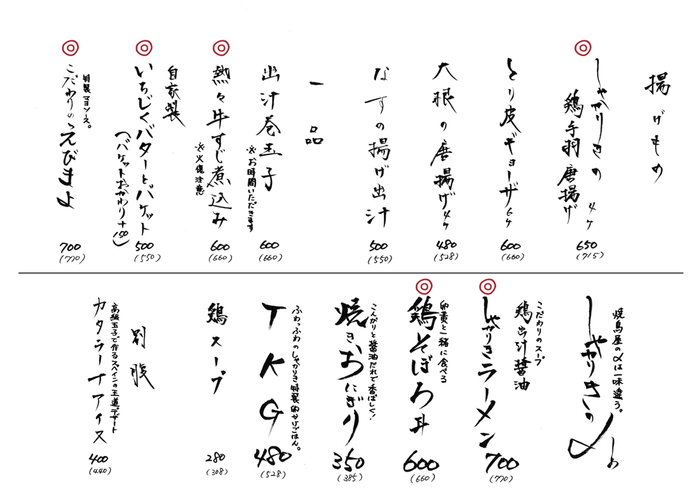 揚げもの
しゃかりきの
鶏手羽唐揚げ 4ヶ
650
(715)
とり皮ギョーザ 6ヶ
600
(660)
大根の唐揚げ 4ヶ
480
(528)
なすの揚げ出汁
500
(550)
一品
出汁巻玉子
※お時間いただきます
600
(660)
熱々牛すじ煮込み
※火傷注意
600
(660)
自家製
いちじくバターとバケット
(バケットおかわり+150)
500
(550)
特製マヨソース。
こだわりのえびまよ
700
(770)
焼鳥屋の〆は一味違う。
しゃかりきの〆
こだわりのスープ
鶏出汁醤油
しゃかりきラーメン
700
(770)
卵黄と一緒に食べる
鶏そぼろ丼
600
(660)
こんがりと醤油だれで香ばしく!
焼きおにぎり
350
(385)
ふわっふわのしゃかりき特製卵かけごはん。
TKG
480
(528)
鶏スープ
280
(308)
別腹
高級玉子で作るスペインの王道デザート
カタラーナアイス
400
(440)